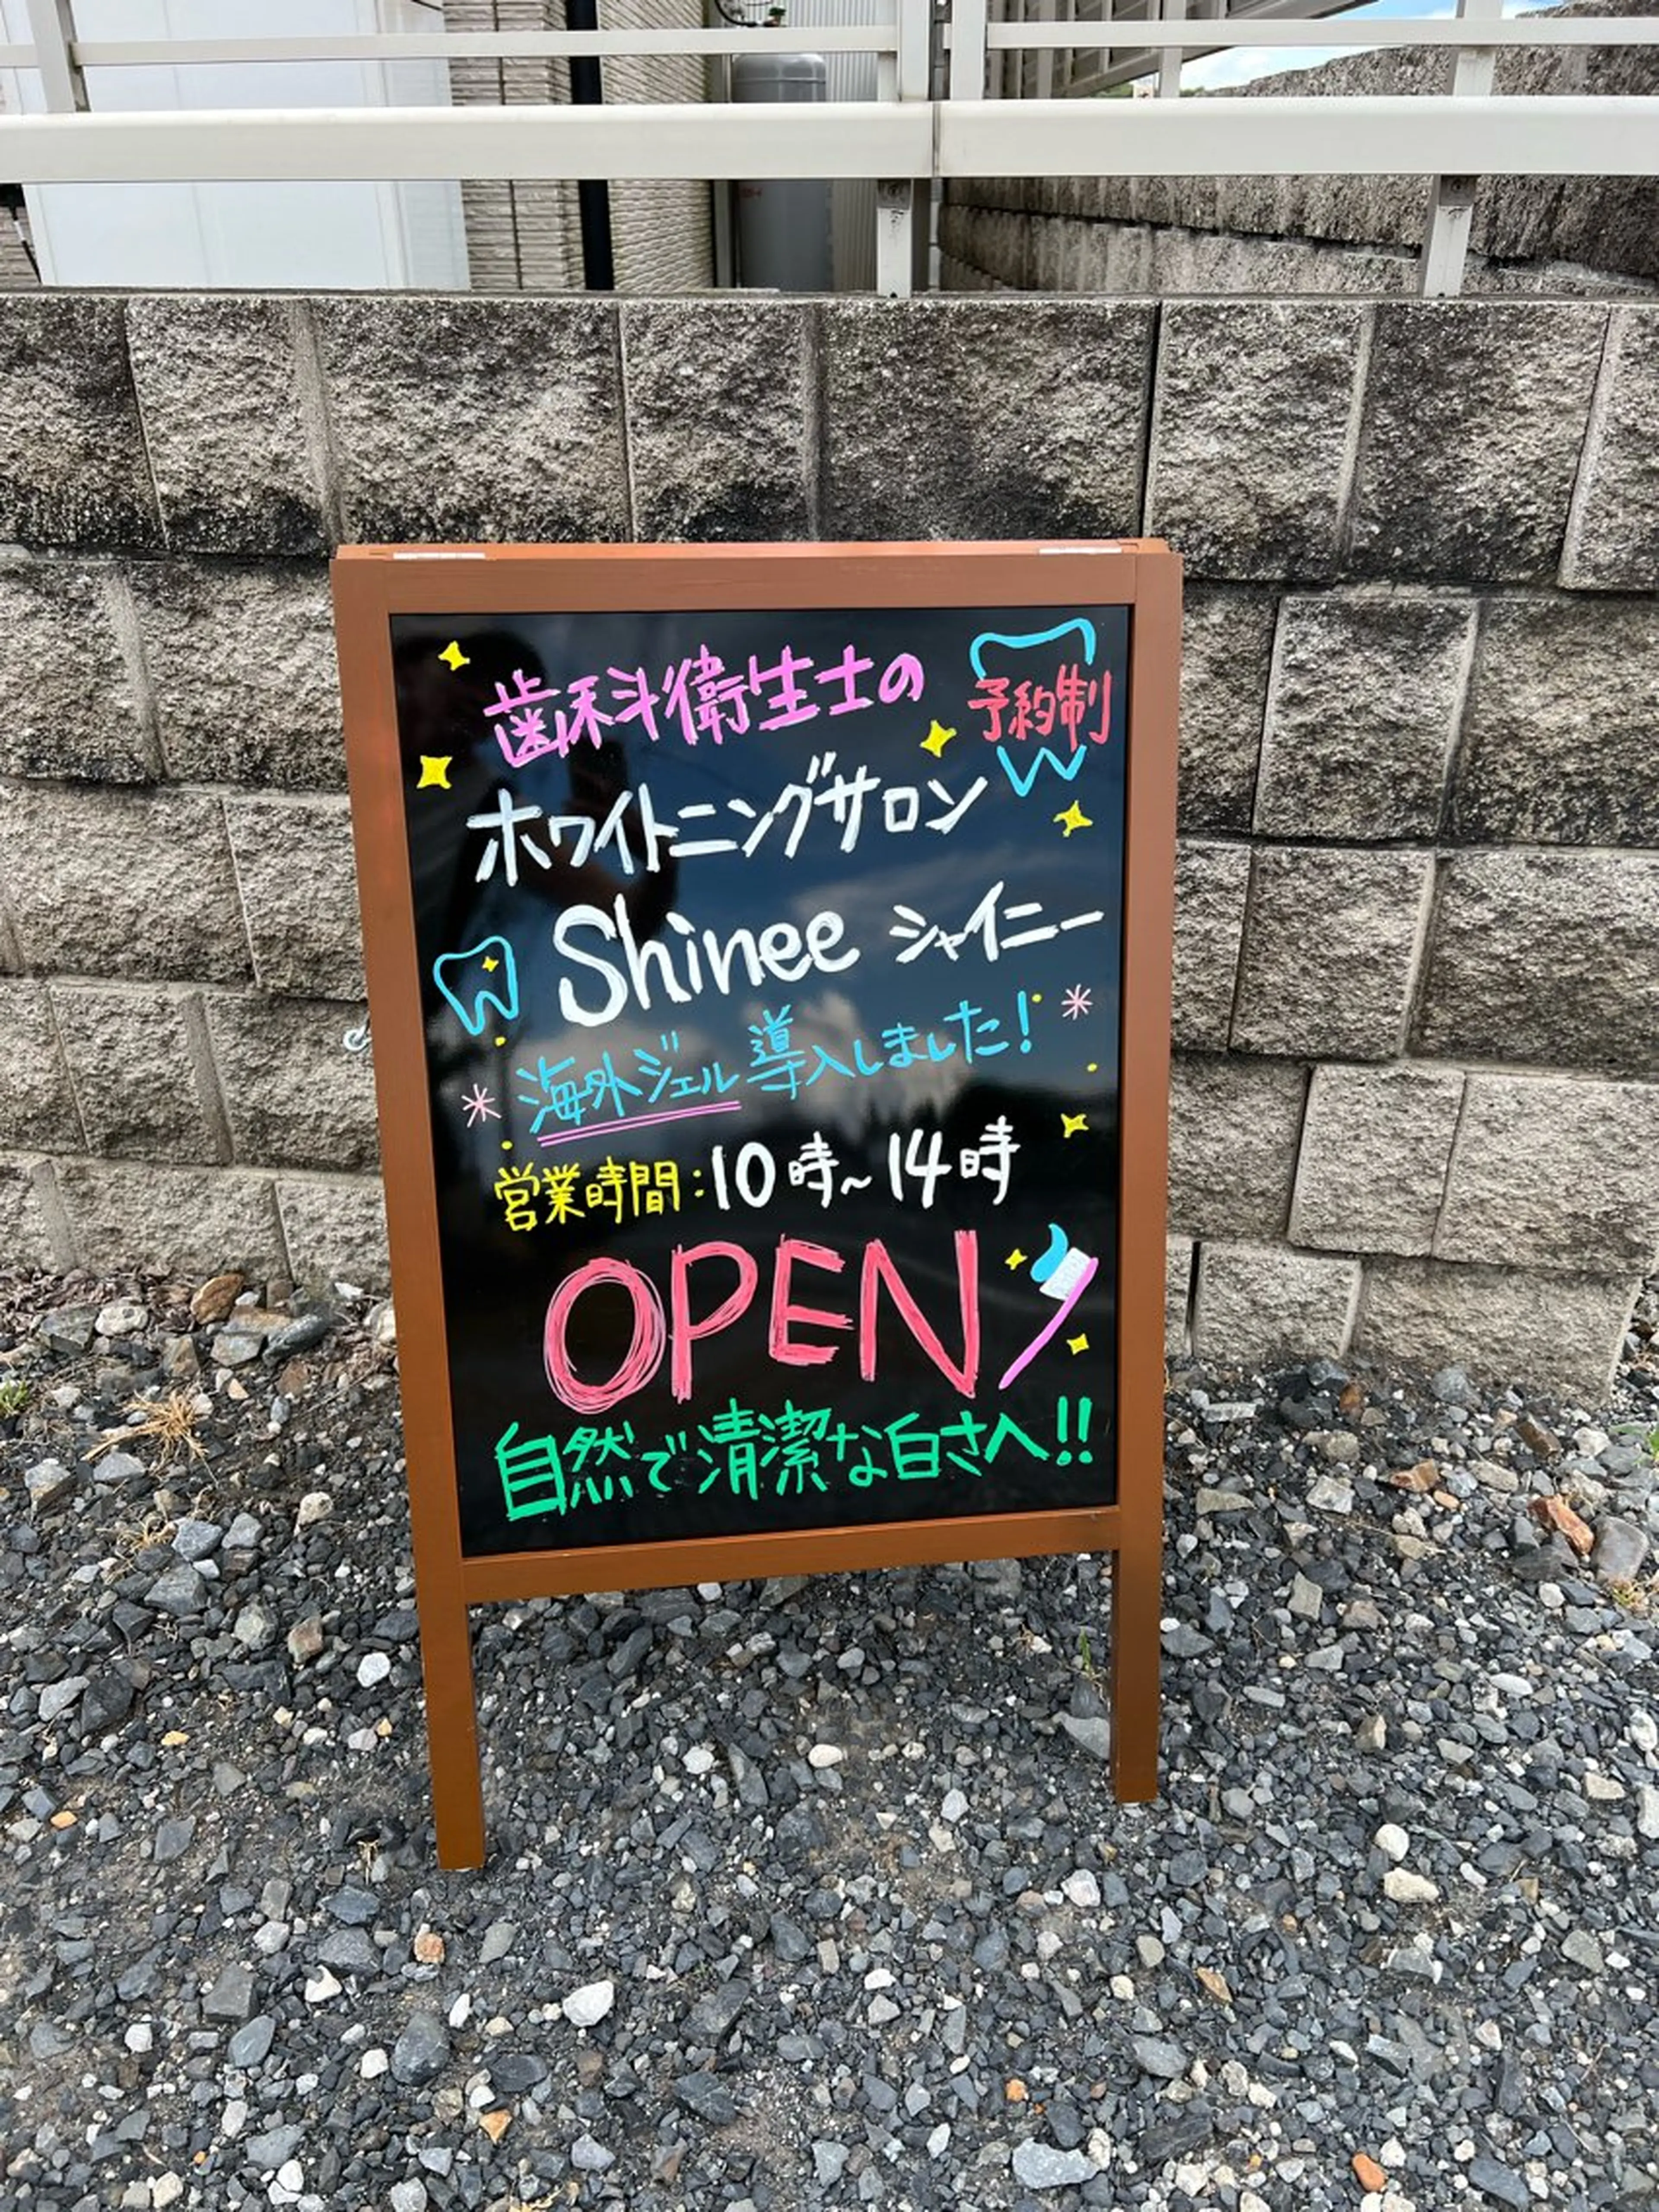 歯科衛生士の
予約制
ホワイトニングサロン
Shinee シャイニー
海外ジェル導入しました!
営業時間:10時~14時
OPEN
自然で清潔な白さへ!!